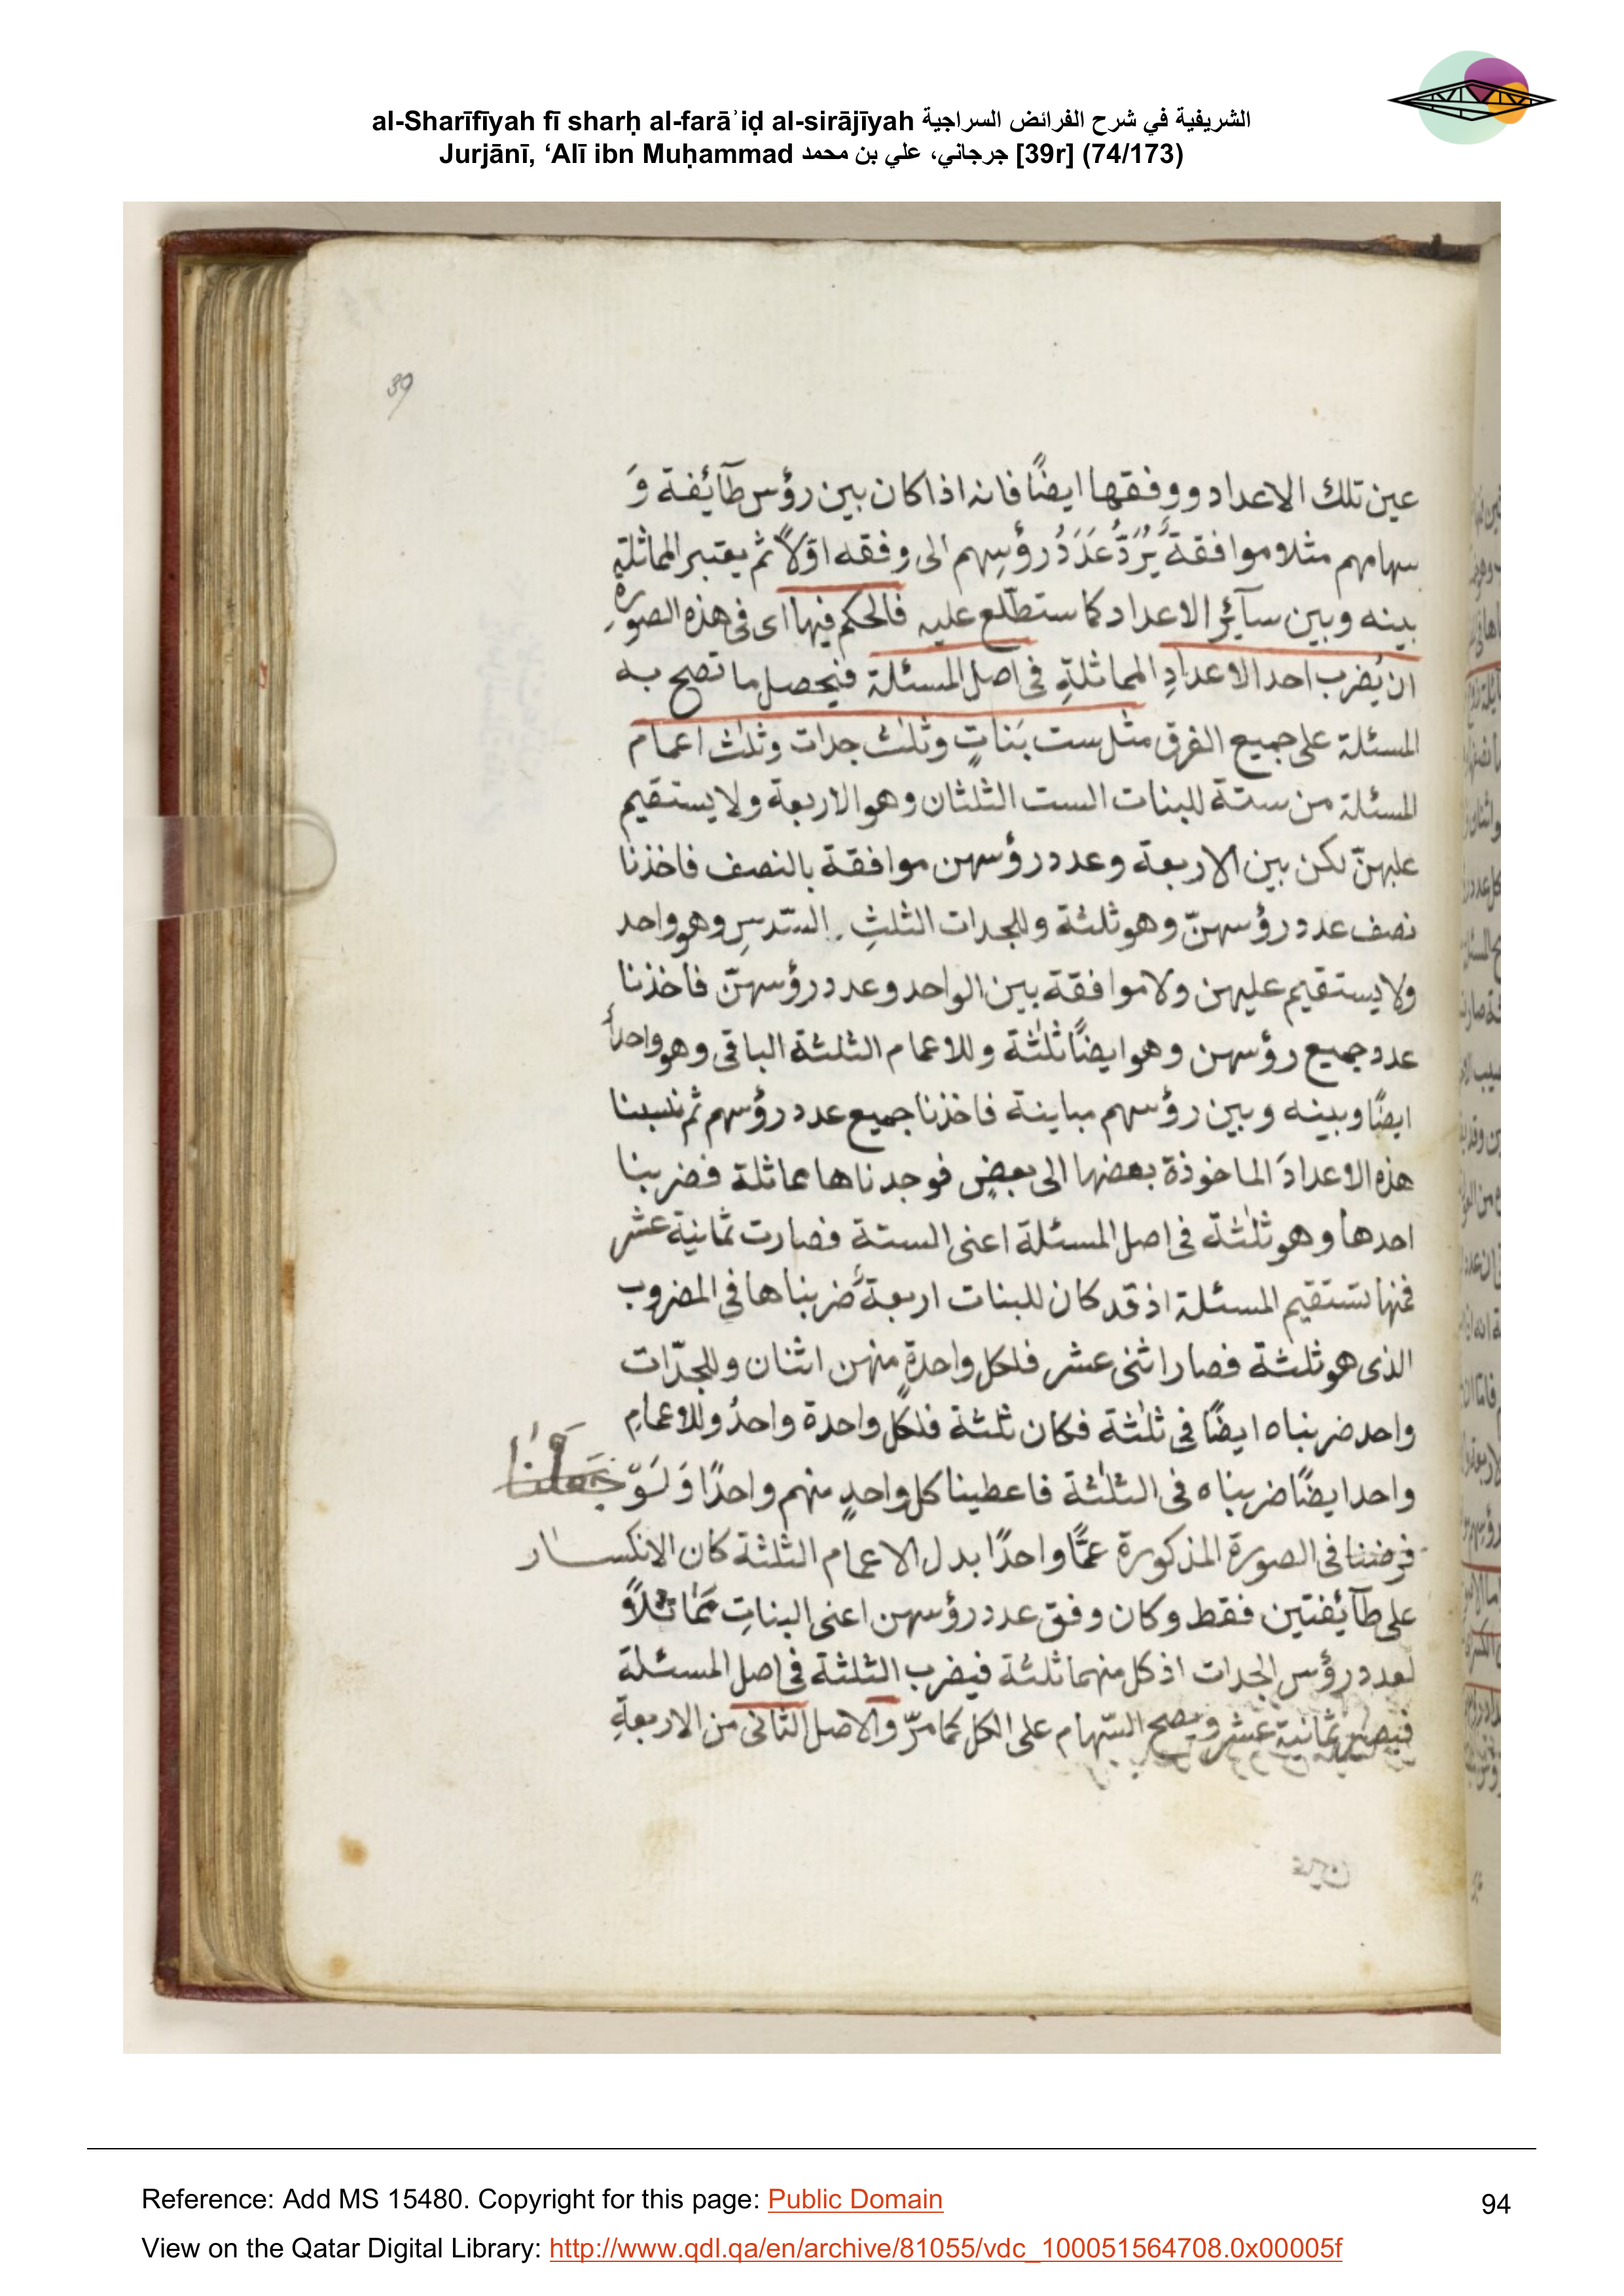 al-Sharīfīyah fī sharḥ al-farāʾiḍ al-sirājīyah الشريفية في شرح الفرائض السراجية
Jurjānī, ‘Alī ibn Muḥammad جرجاني، علي بن محمد [39r] (74/173)
39
عين تلك الاعداد ووفقها ايضًا فانه اذا كان بين رؤس طآئفة وَ
سهامهم مثلا موافقةٌ يُرَدُّ عَدَدُ رؤسِهم الى وفقه اوّلاً ثم يعتبر المماثلة
بينه وبين سآئرِ الاعداد كما ستطّلع عليه فالحكم فيها اى فى هذه الصورة
ان يُضرب احد الاعدادِ المماثلةِ فى اصل المسئلة فيحصل ما تصح به
المسئلة على جميع الفرق مثل ست بَناتٍ وثلٰث جدات وثلٰث اعمام
المسئلة من ستة للبنات الست الثلثان وهو الاربعة ولا يستقيم
عليهنّ لكن بين الاربعة وعدد رؤسهن موافقة بالنصف فاخذنا
نصف عدد رؤسهنّ وهو ثلثة وللجدات الثلثِ السّدسِ وهو واحد
ولا يستقيم عليهن ولا موافقة بين الواحد وعدد رؤسهنّ فاخذنا
عدد جميع رؤسهن وهو ايضًا ثلٰثة وللاعمام الثلثة الباقى وهو واحدٌ
ايضًا وبينه وبين رؤسهم مباينة فاخذنا جميع عدد رؤسهم ثم نسبنا
هذه الاعدادَ الماخوذة بعضها الى بعضٍ فوجدناها مماثلة فضربنا
احدها وهو ثلٰثة فى اصل المسئلة اعنى الستة فصارت ثمانية عشر
فمنها تستقيم المسئلة اذ قد كان للبنات اربعةٌ ضربناها فى المضروب
الذى هو ثلثة فصار اثنى عشر فلكل واحدةٍ منهن اثنان وللجدّات
واحد ضربناه ايضًا فى ثلٰثة فكان ثلثة فلكلٍ واحدة واحدٌ وللاعمامِ
واحد ايضًا ضربناه فى الثلٰثة فاعطينا كل واحدٍ منهم واحدًا وَلَوْ جَعَلْنَا
فرضنا فى الصورة المذكورة عمًّا واحدًا بدل الاعمام الثلثة كان الانكسار
على طآئفتين فقط وكان وفق عدد رؤسهن اعنى البناتِ مماثلاً
لعدد رؤس الجدات اذ كل منهما ثلثة فيضرب الثلثة فى اصل المسئلة
فيصير ثمانية عشر ويصح السّهام على الكل كما مرّ والاصل الثانى من الاربعةِ
Reference: Add MS 15480. Copyright for this page: Public Domain
94
View on the Qatar Digital Library: http://www.qdl.qa/en/archive/81055/vdc_100051564708.0x00005f